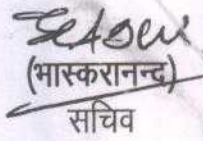 (भास्करानन्द)
सचिव